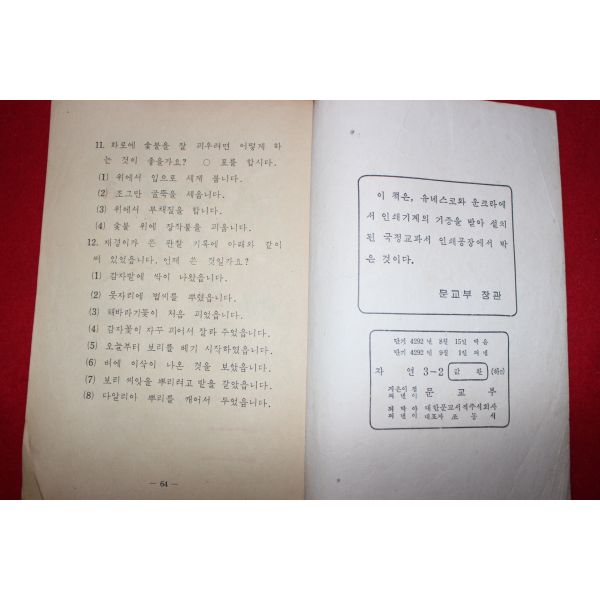 11. 화로에 숯불을 잘 피우려면 어떻게 하
는 것이 좋을까요? ○ 표를 합시다.
(1) 위에서 입으로 세게 붑니다.
(2) 조그만 굴뚝을 세웁니다.
(3) 위에서 부채질을 합니다.
(4) 숯불 위에 장작불을 피웁니다.
12. 재경이가 쓴 관찰 기록에 아래와 같이
써 있었읍니다. 언제 쓴 것일가요?
(1) 감자밭에 싹이 나왔읍니다.
(2) 못자리에 볍씨를 뿌렸읍니다.
(3) 해바라기꽃이 처음 피었읍니다.
(4) 감자꽃이 자꾸 피어서 잘라 주었읍니다.
(5) 오늘부터 보리를 베기 시작하였읍니다.
(6) 벼에 이삭이 나온 것을 보았읍니다.
(7) 보리 씨앗을 뿌리려고 밭을 갈았읍니다.
(8) 다알리아 뿌리를 캐어서 두었읍니다.
— 64 —
이 책은, 유네스코와 운크라에
서 인쇄기계의 기증을 받아 설치
된 국정교과서 인쇄공장에서 박
은 것이다.
문교부 장관
단기 4292 년 8월 15일 박음
단기 4292 년 9월 1일 펴냄
자 연 3-2 값 환
지은이 겸
펴낸이 문 교 부
대한문교서적주식회사
펴낸이 대표자